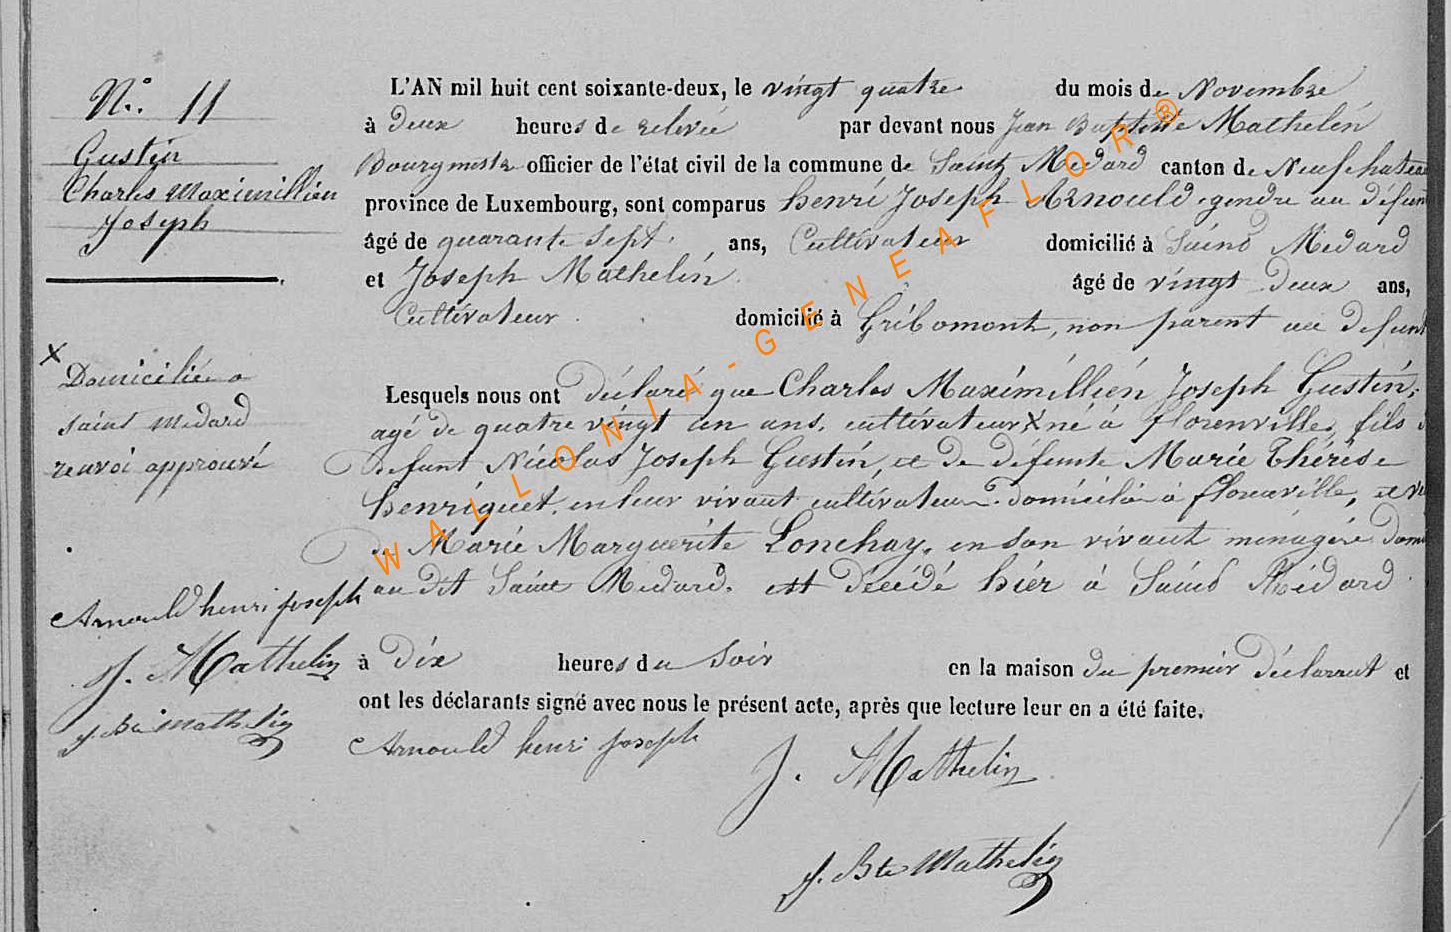 N° 11
Gustin
Charles Maximillien
Joseph
L'AN mil huit cent soixante-deux, le vingt quatre du mois de Novembre
à Deux heures de relevée par devant nous Jean Baptiste Mathelin
Bourgmestre officier de l'état civil de la commune de Saint Médard canton de Neufchateau
province de Luxembourg, sont comparus henri Joseph Arnould, gendre au défunt
âgé de quarante sept ans, Cultivateur domicilié à Saint Médard
et Joseph Mathelin âgé de vingt Deux ans,
Cultivateur domicilié à Gribomont, non parent au défunt
Lesquels nous ont Déclaré que Charles Maximillien Joseph Gustin,
agé de quatre vingt un ans, cultivateur X né à florenville, fils
Defunt Nicolas Joseph Gustin, et de défunte Marie Thérèse
henriquet, en leur vivant cultivateur Domicilié à florenville, et
de Marie Marguerite Lonchay, en son vivant ménagère Domi
au dit Saint Medard, est Décédé hier à Saint Médard
à Dix heures du Soir en la maison du premier Déclarant et
ont les déclarants signé avec nous le présent acte, après que lecture leur en a été faite.
X Domicilié à
saint medard
renvoi approuvé
Arnould henri joseph
J. Mathelin
J. Bte Mathelin
Arnould henri joseph
J. Mathelin
J. Bte Mathelin
WALLONIA-GENEAFLOR®